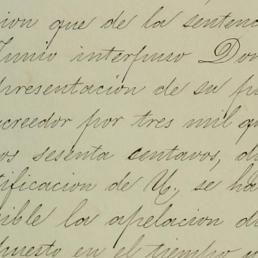 cion que de la sentenc
Junio interpuso Don
presentacion de su p
acreedor por tres mil qu
os sesenta centavos, d
tificacion de U., se ha
sible la apelacion de
puesto en el tiempo y